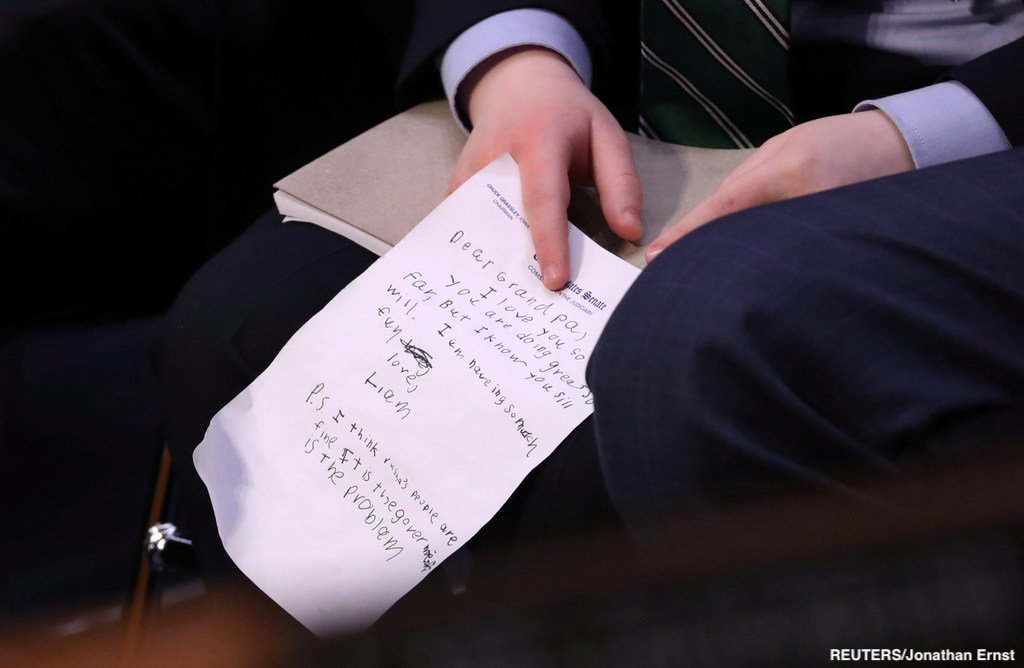 CHUCK GRASSLEY, IOWA
CHAIRMAN
ates Senate
COMM THE JUDICIARY
Dear Grandpa,
I love you so
You are doing great so
far, But I know you sill
will. I am haveing so much
fun
love,
Liam
P.S I think rusha's people are
fine It is the government
is the problam
REUTERS/Jonathan Ernst